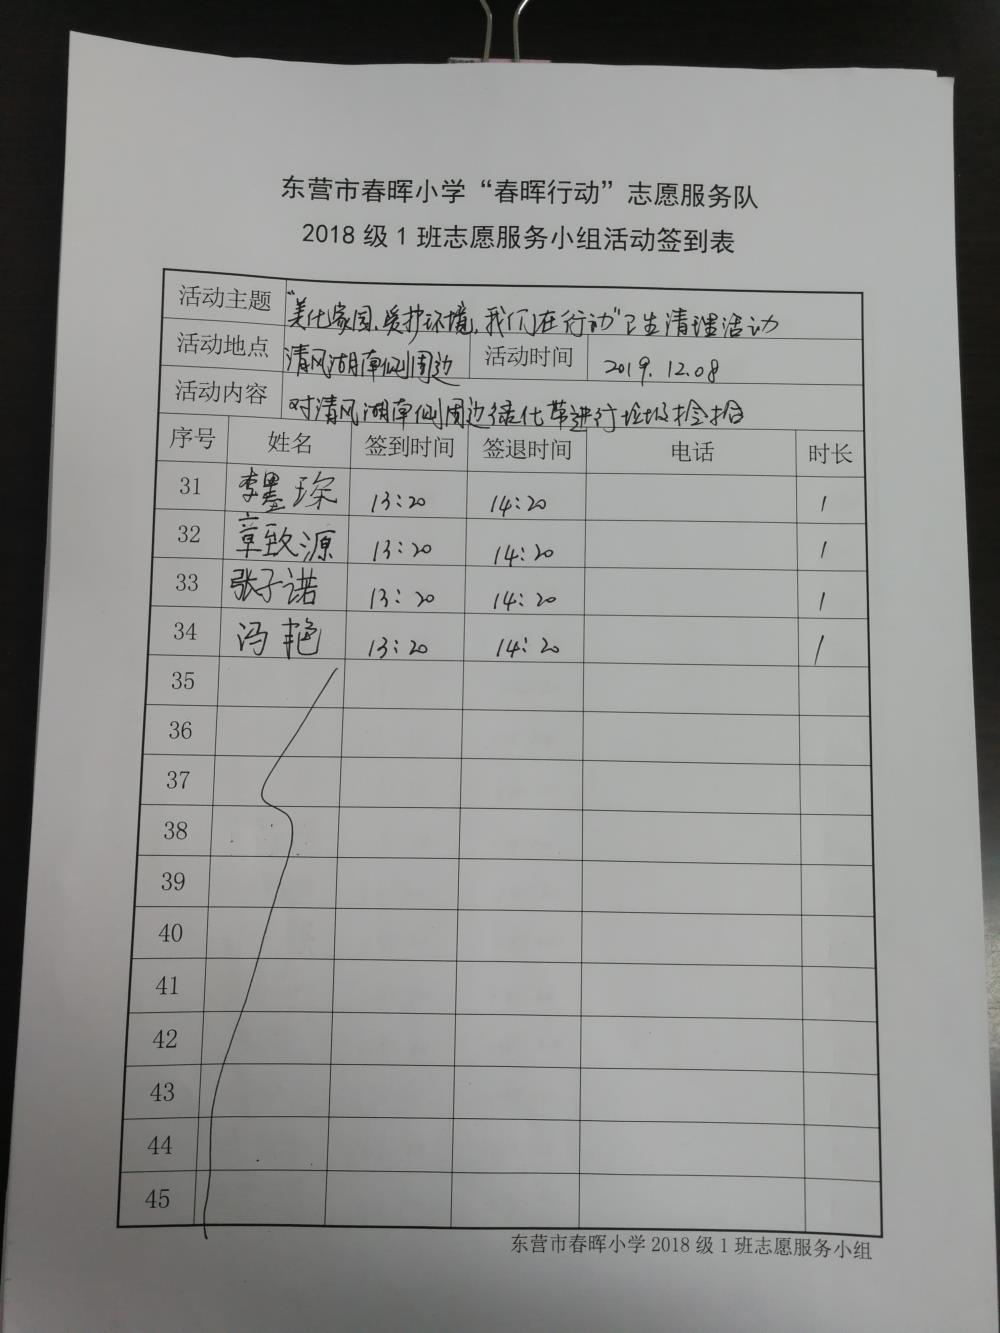 东营市春晖小学“春晖行动”志愿服务队
2018 级 1 班志愿服务小组活动签到表
活动主题 “美化家园、爱护环境，我们在行动”卫生清理活动
活动地点 清风湖南侧周边 活动时间 2019.12.08
活动内容 对清风湖南侧周边绿化带进行垃圾捡拾
序号 姓名 签到时间 签退时间 电话 时长
31 李墨琛 13:20 14:20 1
32 章致源 13:20 14:20 1
33 张子诺 13:20 14:20 1
34 冯艳 13:20 14:20 1
35
36
37
38
39
40
41
42
43
44
45
东营市春晖小学 2018 级 1 班志愿服务小组